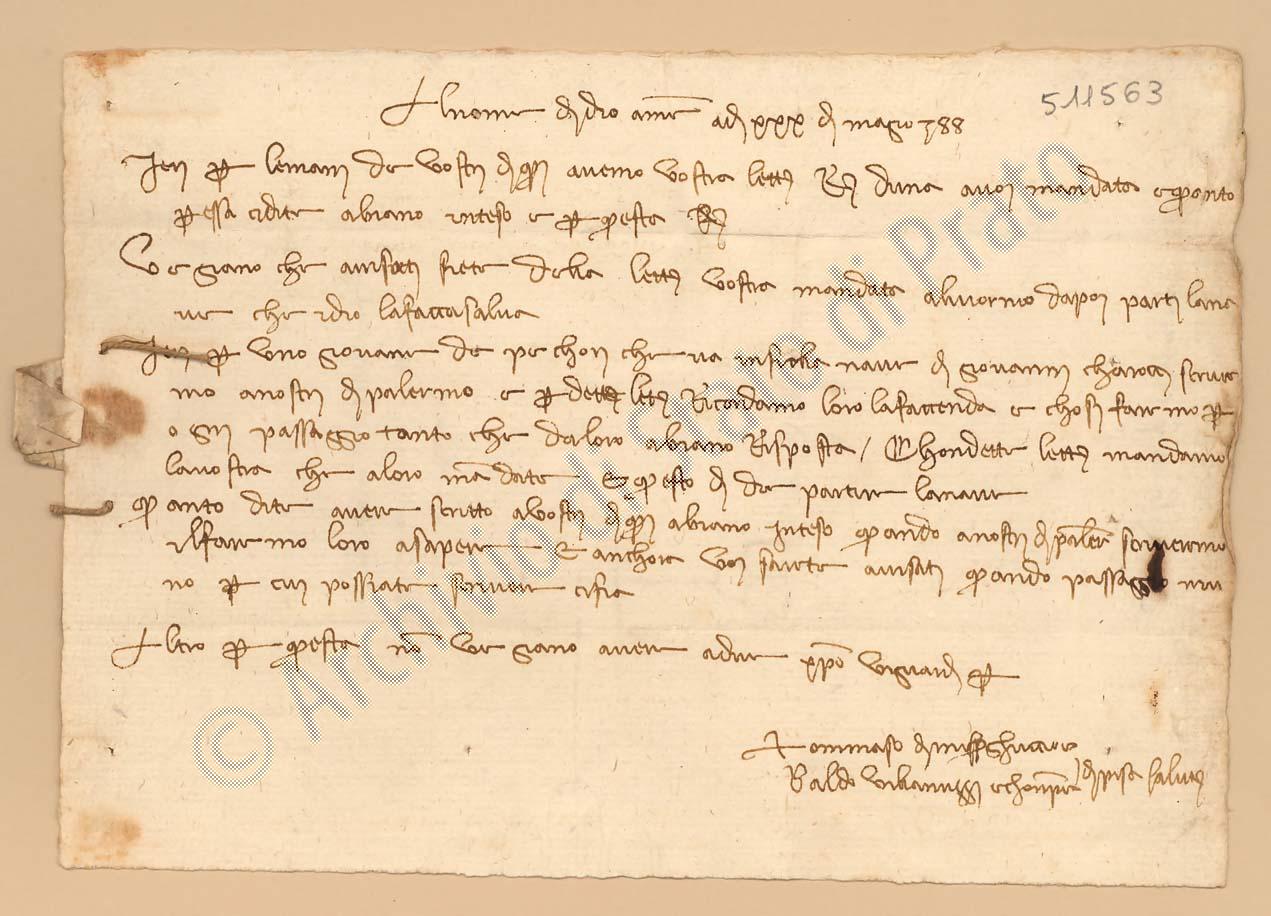 511563
Al nome di dio ame adi xxx di magio 388
Jeri per lemani de vostri di qui avemo vostra lettera R d'una a voi mandata e quanto
per essa ci dite abiamo inteso e per questa R
Vegiamo che avisati siete della lettera vostra mandata a livorno dapoi parti la na
ve che idio la faccia salva
Jeri per uno giovane de pechori che va in sulla nave di giovanni charocci scrive
mo a nostri di palermo e per dette lettere Ricordamo loro la faccenda e chosi faremo per
ogni passaggio tanto che da loro abiamo Risposta / Chon dette lettere mandamo
la vostra che a loro mandate E questo di de partire la nave
quanto dite avere scritto a vostri di qui abiamo inteso quando a nostri di palermo scriveremo
il faremo loro a sapere E anchora voi sarete avisati quando passaggio niu
no per cui possiate scrivere ci fia
Altro per questa non vegiamo avere a dire xpo vi guardi per
Tommaso di miss ghuccio e
Baldo e chonpa di pisa salute
© Archivio di Stato di Prato